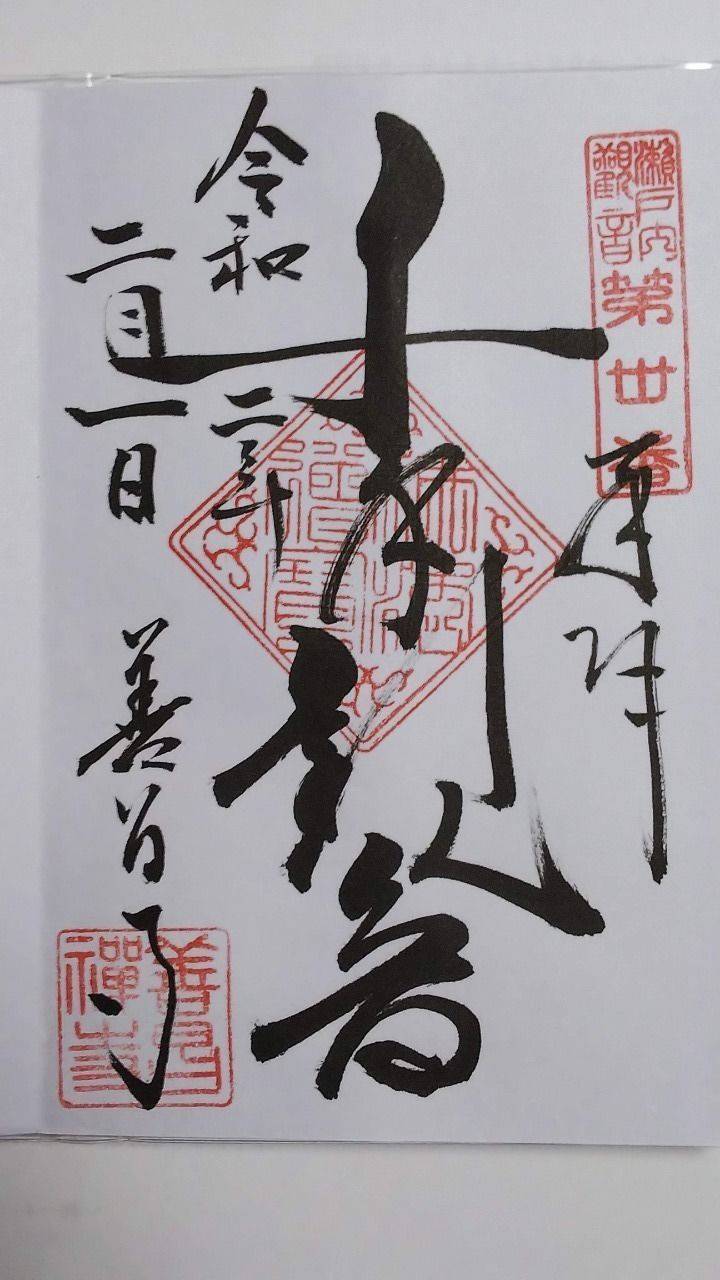 瀨戸内
觀音
第卅番
奉拝
千手観音
令和二年
二月一日
善昌寺
善昌
禪寺